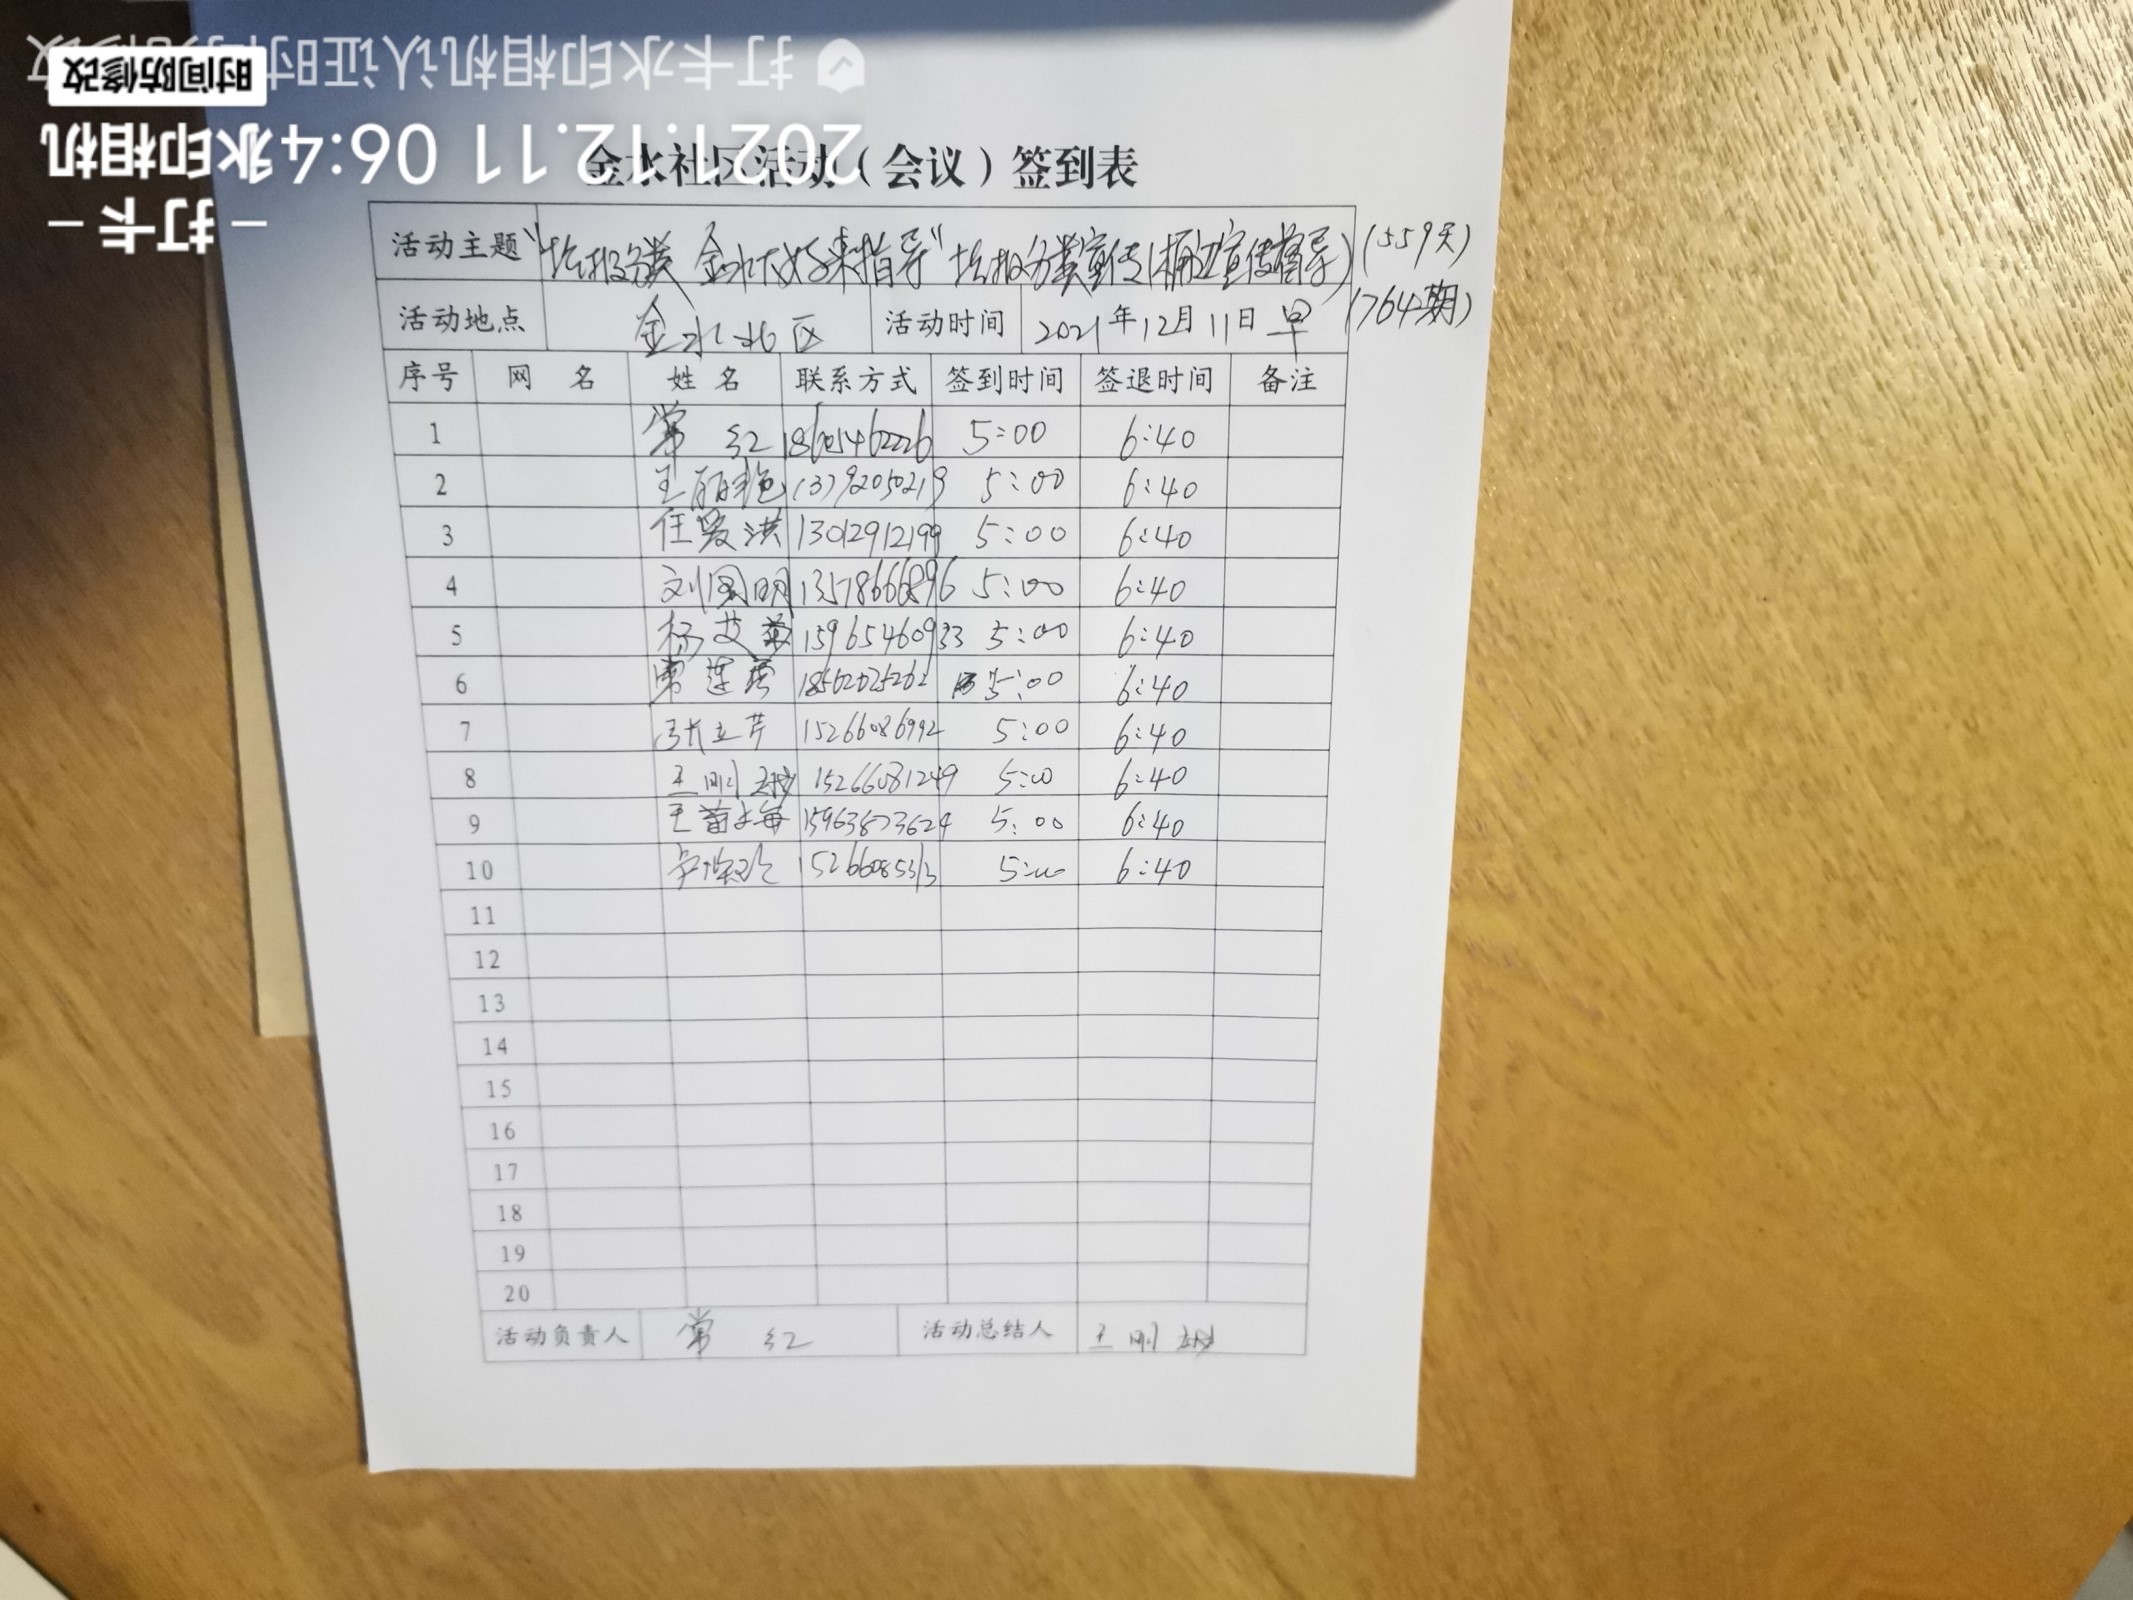 打卡水印相机认证时
时间防修改
2021.12.11 06:4
水印相机
– 打卡 –
金水社区活动（会议）签到表
活动主题 "垃圾分类 金水大好来指导"垃圾分类宣传(桶边宣传督导) (559天)
活动地点 金水北区 活动时间 2021年12月11日 早 (764期)
序号 网名 姓名 联系方式 签到时间 签退时间 备注
1 常红 5:00 6:40
2 王丽艳 13792050219 5:00 6:40
3 任爱洪 13012912199 5:00 6:40
4 刘国明 13578666896 5:00 6:40
5 杨艾英 15965460933 5:00 6:40
6 18562025262 5:00 6:40
7 张立芹 15266086992 5:00 6:40
8 王刚 15266081249 5:00 6:40
9 王 15963873624 5:00 6:40
10 15266085313 5:00 6:40
11
12
13
14
15
16
17
18
19
20
活动负责人 常红 活动总结人 王刚